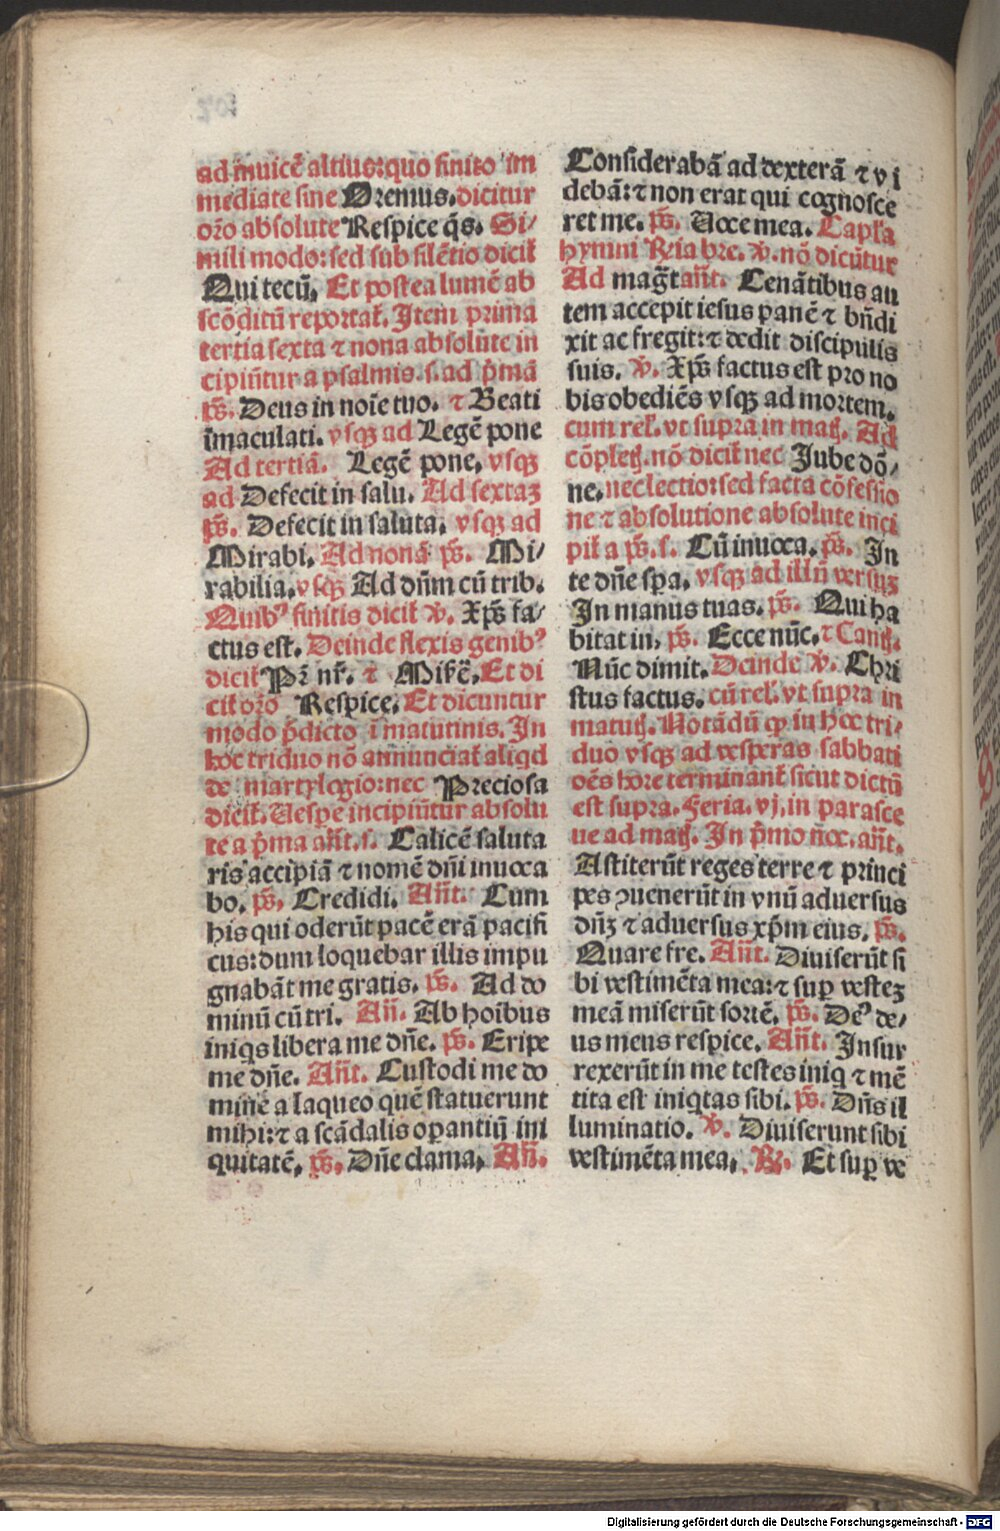 ad inuicē altius: quo finito im
mediate sine Oremus. dicitur
orō absolute Respice q̄s. Si/
mili modo: sed sub silētio dicit̄
Qui tecū. Et postea lumē ab
scōditū reportat̄. Item prima
tertia sexta ⁊ nona absolute in
cipiūtur a psalmis .s. ad p̄mā
ps̄. Deus in noīe tuo. ⁊ Beati
īmaculati. vsqꝫ ad Legē pone
Ad tertiā. Legē pone, vsqꝫ
ad Defecit in salu. Ad sextaꝫ
ps̄. Defecit in saluta. vsqꝫ ad
Mirabi. Ad nonā ps̄. Mi/
rabilia. vsqꝫ Ad dn̄m cū trib.
Quibꝰ finitis dicit̄ v̄. Xp̄s fa/
ctus est. Deinde flexis genibꝰ
dicit̄ Pr̄ nr̄. ⁊ Misēr̄. Et di
cit̄ orō Respice. Et dicuntur
modo p̄dicto ī matutinis. In
hoc triduo nō annunciat̄ aliqd
de martylogio: nec Preciosa
dicit̄. Uespe incipiūtur absolu
te a p̄ma an̄t. s. Calicē saluta
ris accipiā ⁊ nomē dn̄i inuoca
bo. ps̄. Credidi. An̄t. Cum
his qui oderūt pacē erā pacifi
cus: dum loquebar illis impu
gnabāt me gratis. ps̄. Ad do
minū cū tri. An̄. Ab hoībus
iniqs libera me dn̄e. ps̄. Eripe
me dn̄e. An̄t. Custodi me do
mine a laqueo quē statuerunt
mihi: ⁊ a scādalis oꝑantiū ini
quitatē. ps̄. Dn̄e clama. An̄.
Considerabā ad dexterā ⁊ vi
debā: ⁊ non erat qui cognosce
ret me. ps̄. Uoce mea. Capl̄a
hymni R̄ia bre. v̄. nō dicūtur
Ad maḡt an̄t. Cenātibus au
tem accepit iesus panē ⁊ bn̄di
xit ac fregit: ⁊ dedit discipulis
suis. v̄. Xp̄s factus est pro no
bis obediēs vsqꝫ ad mortem.
cum rel̄. vt supra in matꝭ. Ad
cōpletꝭ. nō dicit̄ nec Jube dō/
ne. nec lectio: sed facta cōfessio
ne ⁊ absolutione absolute inci
pit̄ a ps̄. s. Cū inuoca. ps̄. In
te dn̄e sꝑa. vsqꝫ ad illū versuꝫ
In manus tuas. ps̄. Qui ha
bitat in. ps̄. Ecce nūc. ⁊ Cantꝭ.
Nūc dimit. Deinde v̄. Chri
stus factus. cū rel̄. vt supra in
matutꝭ. Notādū ꝙ in hoc tri/
duo vsqꝫ ad vesperas sabbati
oēs hore terminant̄ sicut dictū
est supra. Feria. vj. in parasce
ue ad matꝭ. In p̄mo noc. an̄t.
Astiterūt reges terre ⁊ princi
pes ↄuenerūt in vnū aduersus
dn̄ꝫ ⁊ aduersus xp̄m eius. ps̄.
Quare fre. An̄t. Diuiserūt si
bi vestimēta mea: ⁊ suꝑ vesteꝫ
meā miserūt sortē. ps̄. Deꝰ de/
us meus respice. An̄t. Insur
rexerūt in me testes iniq ⁊ mē
tita est iniqtas sibi. ps̄. Dn̄s il
luminatio. v̄. Diuiserunt sibi
vestimēta mea. R̄. Et suꝑ ve
Digitalisierung gefördert durch die Deutsche Forschungsgemeinschaft - DFG